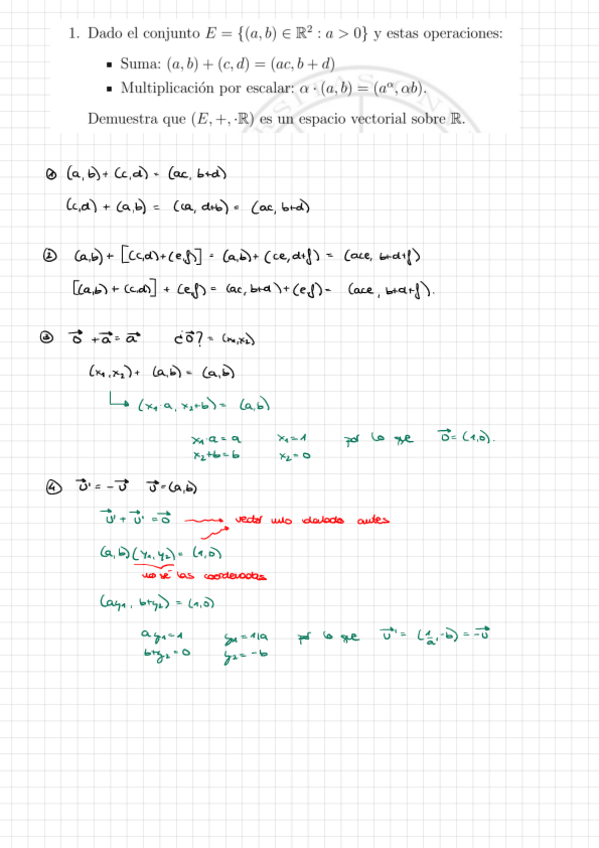 1. Dado el conjunto E = {(a, b) ∈ ℝ² : a > 0} y estas operaciones:
▪ Suma: (a, b) + (c, d) = (ac, b + d)
▪ Multiplicación por escalar: α · (a, b) = (a^α, αb).
Demuestra que (E, +, ·ℝ) es un espacio vectorial sobre ℝ.
(a,b) + (c,d) = (ac, b+d)
(c,d) + (a,b) = (ca, d+b) = (ac, b+d)
② (a,b) + [(c,d)+(e,f)] = (a,b) + (ce, d+f) = (ace, b+d+f)
[(a,b) + (c,d)] + (e,f) = (ac, b+d) + (e,f) = (ace, b+d+f).
③ 0⃗ + a⃗ = a⃗ ¿0⃗? = (x₁,x₂)
(x₁,x₂) + (a,b) = (a,b)
↳ (x₁·a, x₂+b) = (a,b)
x₁·a = a x₁=1 por lo que 0⃗ = (1,0).
x₂+b = b x₂=0
④ v⃗' = -v⃗ v⃗ = (a,b)
v⃗' + v⃗ = 0⃗ → vector nulo calculado antes
(a,b)(y₁,y₂) = (1,0)
no sé las coordenadas
(ay₁, b+y₂) = (1,0)
ay₁=1 y₁=1/a por lo que v⃗' = (1/a, -b) = -v⃗
b+y₂=0 y₂=-b